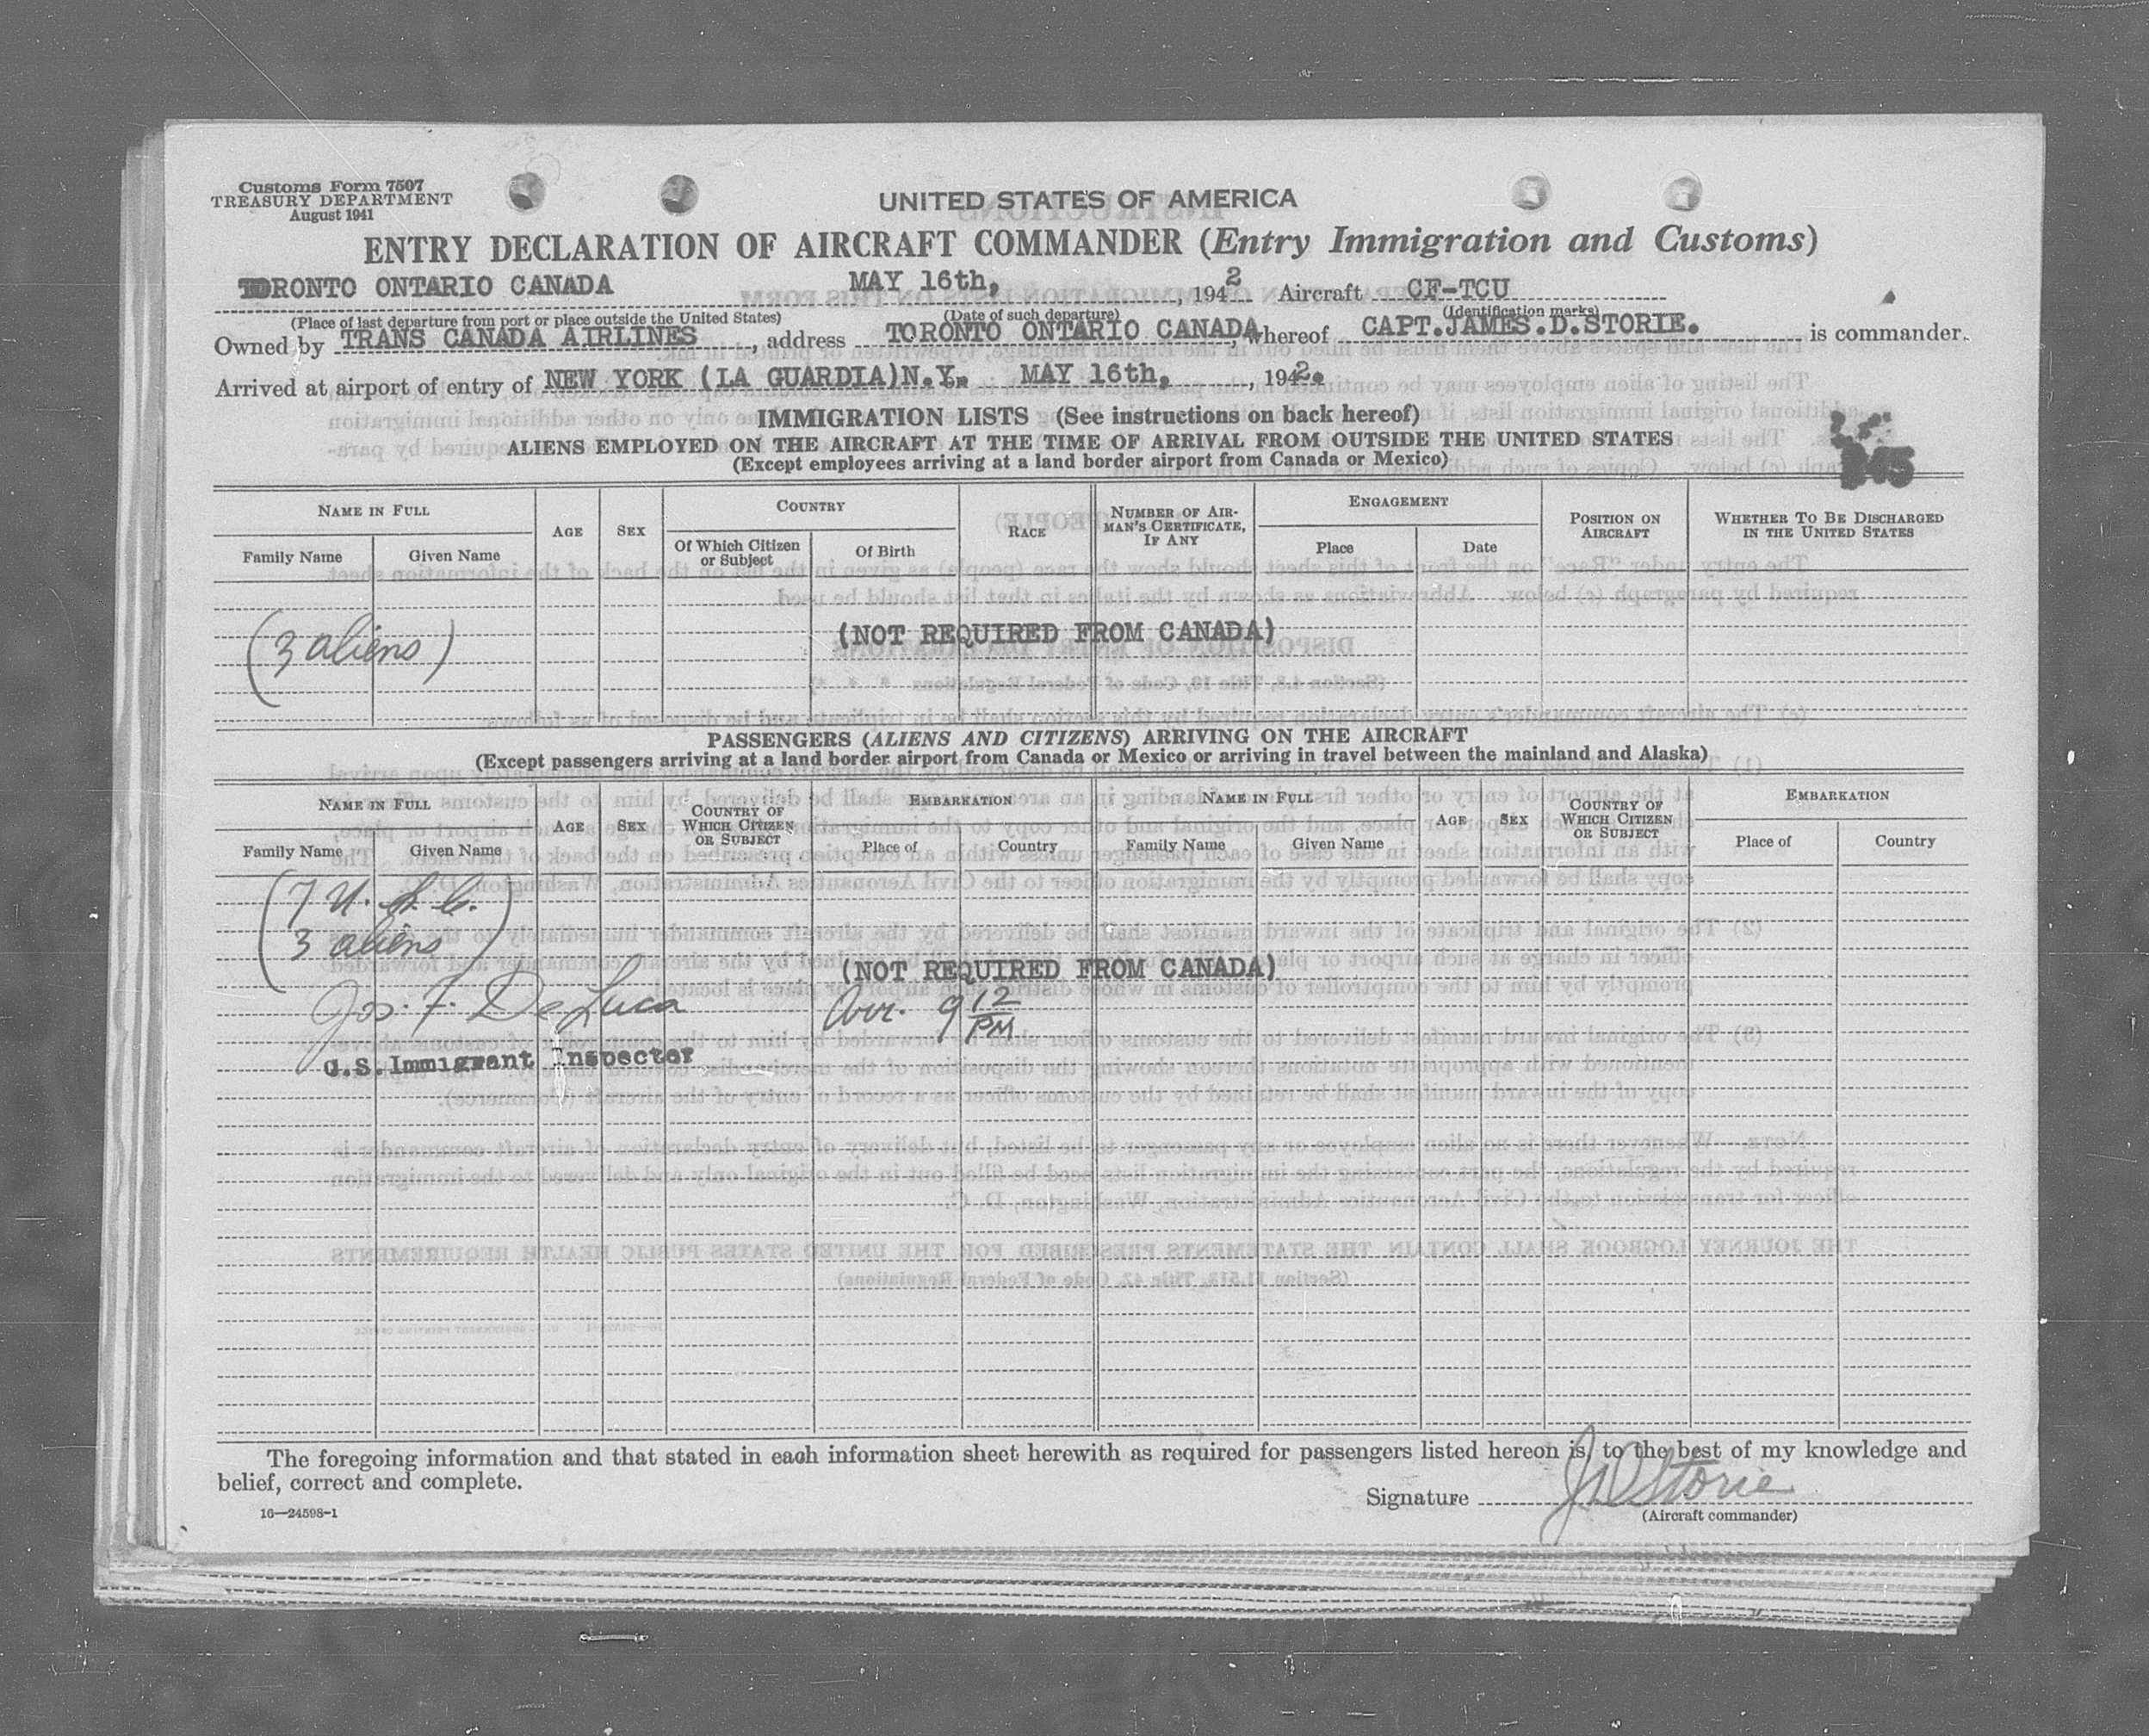 Customs Form 7507
TREASURY DEPARTMENT
August 1941
UNITED STATES OF AMERICA
ENTRY DECLARATION OF AIRCRAFT COMMANDER (Entry Immigration and Customs)
TORONTO ONTARIO CANADA MAY 16th, , 1942 Aircraft CF-TCU
(Place of last departure from port or place outside the United States) (Date of such departure) (Identification marks)
Owned by TRANS CANADA AIRLINES , address TORONTO ONTARIO CANADA, whereof CAPT.JAMES.D.STORIE. is commander.
Arrived at airport of entry of NEW YORK (LA GUARDIA)N.Y. MAY 16th, , 1942.
IMMIGRATION LISTS (See instructions on back hereof)
ALIENS EMPLOYED ON THE AIRCRAFT AT THE TIME OF ARRIVAL FROM OUTSIDE THE UNITED STATES
(Except employees arriving at a land border airport from Canada or Mexico)
NAME IN FULL AGE SEX COUNTRY RACE NUMBER OF AIR-MAN'S CERTIFICATE, IF ANY ENGAGEMENT POSITION ON AIRCRAFT WHETHER TO BE DISCHARGED IN THE UNITED STATES
Family Name Given Name Of Which Citizen or Subject Of Birth Place Date
(3 aliens) (NOT REQUIRED FROM CANADA)
PASSENGERS (ALIENS AND CITIZENS) ARRIVING ON THE AIRCRAFT
(Except passengers arriving at a land border airport from Canada or Mexico or arriving in travel between the mainland and Alaska)
NAME IN FULL AGE SEX COUNTRY OF WHICH CITIZEN OR SUBJECT EMBARKATION NAME IN FULL AGE SEX COUNTRY OF WHICH CITIZEN OR SUBJECT EMBARKATION
Family Name Given Name Place of Country Family Name Given Name Place of Country
(7 U.S.C.
3 aliens)
(NOT REQUIRED FROM CANADA)
Jos. F. DeLuca Arr. 9 12 PM
U.S. Immigrant Inspector
The foregoing information and that stated in each information sheet herewith as required for passengers listed hereon is, to the best of my knowledge and
belief, correct and complete.
Signature JDStorie
16—24598-1 (Aircraft commander)